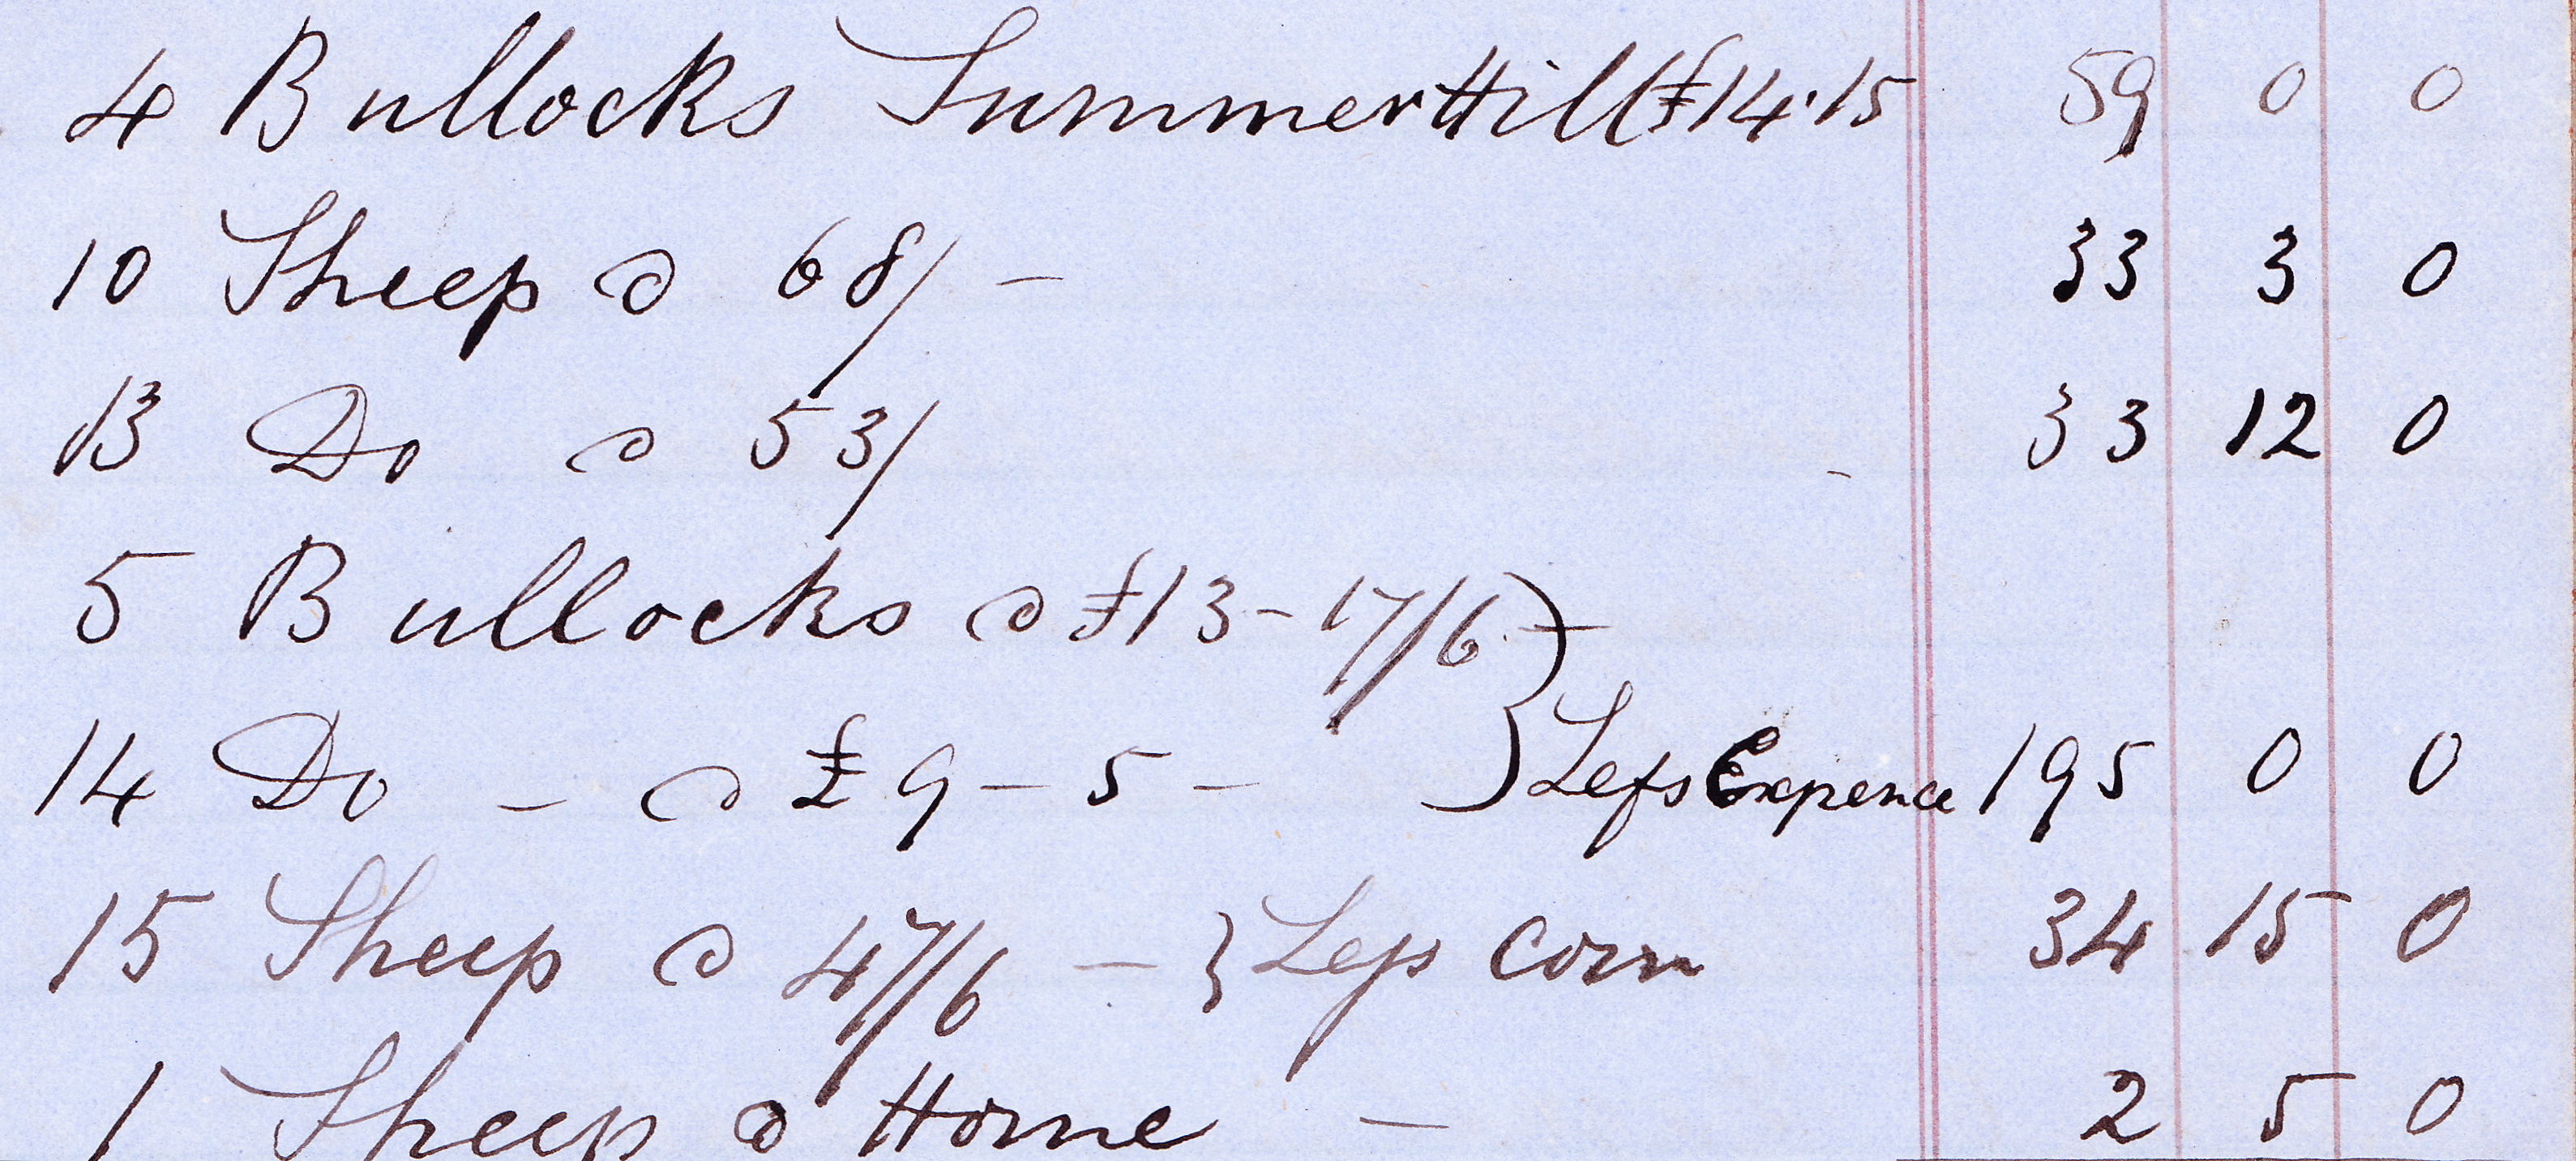 4 Bullocks Summer Hill £14·15 59 0 0
10 Sheep @ 68/ - 33 3 0
13 Do @ 53/ - 33 12 0
5 Bullocks @ £13-17/6 -
14 Do - @ £9-5- } Less Expence 195 0 0
15 Sheep @ 47/6 - } Less Corn 34 15 0
1 Sheep @ Home - 2 5 0